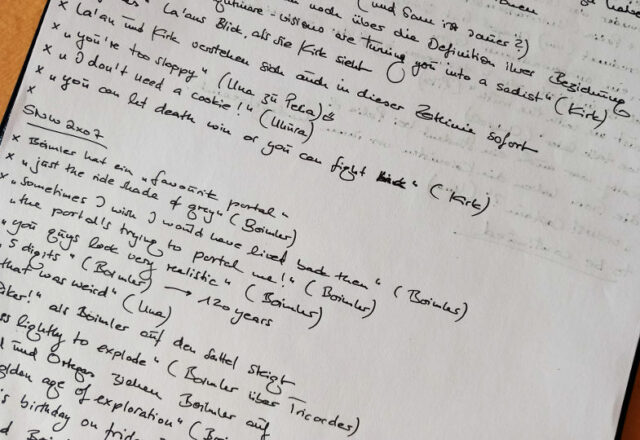 noch über die Definition ihrer Beziehung
(und Sam ist sauer?)
visions are turning you into a sadist" (Kirk)
x La'aus Blick, als sie Kirk sieht
x La'an und Kirk verstehen sich auch in dieser Zeitlinie sofort
x "you're too sloppy" (Una zu Pelia)
x "I don't need a cookie!" (Uhura)
x "you can let death win or you can fight back" (Kirk)
x
SNW 2x07
x Boimler hat ein "favourite portal"
x "just the right shade of grey" (Boimler)
x "sometimes I wish I would have lived back then" (Boimler)
"the portal's trying to portal me!" (Boimler)
"you guys look very realistic" (Boimler)
5 digits" (Boimler) → 120 years
that was weird" (Una)
Riker!" als Boimler auf den Sattel steigt
lightly to explode" (Boimler über Tricorder)
und Ortegas ziehen Boimler auf
golden age of exploration"
birthday on friday